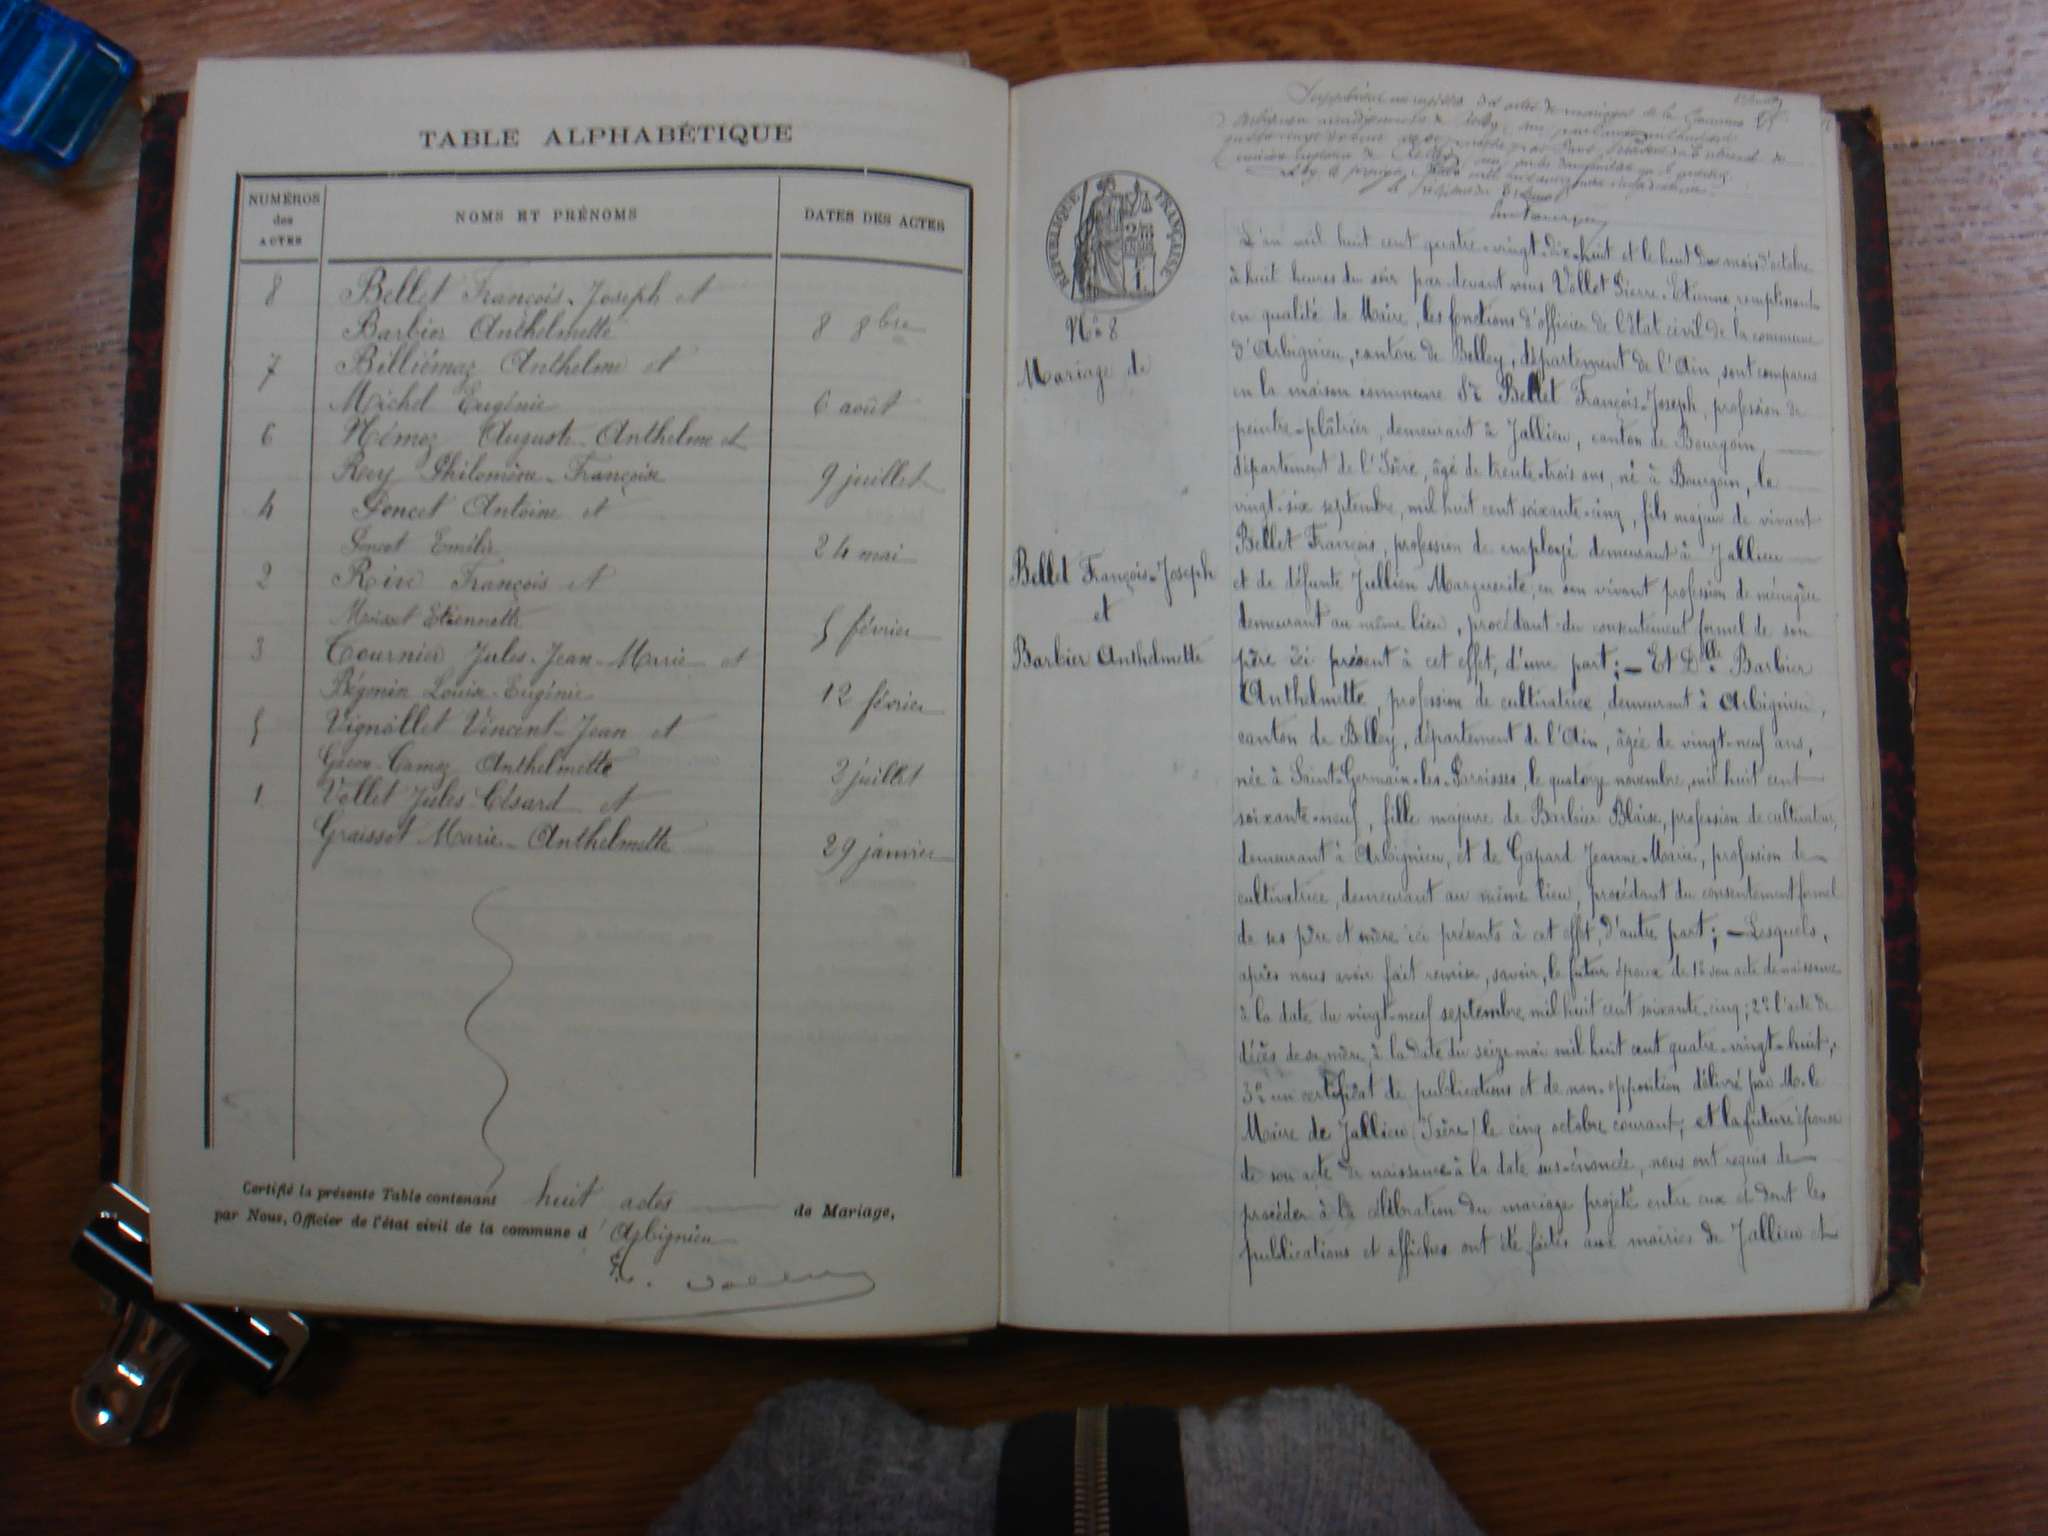 TABLE ALPHABÉTIQUE
NUMÉROS des ACTES
NOMS ET PRÉNOMS
DATES DES ACTES
8 Bellet François-Joseph et
Barbier Anthelmette 8 8bre
7 Billiémaz Anthelme et
Michel Eugénie 6 août
6 Némoz Auguste-Anthelme et
Rey Philomène-Françoise 9 juillet
4 Poncet Antoine et
Poncet Emélie 24 mai
2 Rive François et
Etiennette 5 février
3 Tournier Jules-Jean-Marie et
Bégonin Louise-Eugénie 12 février
5 Vignollet Vincent-Jean et
Camoz Anthelmette 2 juillet
1 Vollet Jules César et
Graissot Marie-Anthelmette 29 janvier
Certifié la présente Table contenant huit actes de Mariage,
par Nous, Officier de l'état civil de la commune d'Arbignieu
RÉPUBLIQUE FRANÇAISE
N° 8
Mariage de
Bellet François-Joseph
et
Barbier Anthelmette
L'an mil huit cent quatre-vingt-dix-huit et le huit du mois d'octobre
à huit heures du soir par-devant nous Vollet Pierre-Etienne, remplissant
en qualité de Maire, les fonctions d'officier de l'état civil de la commune
d'Arbignieu, canton de Belley, département de l'Ain, sont comparus
en la maison commune Sr Bellet François-Joseph, profession de
peintre-plâtrier, demeurant à Jallieu, canton de Bourgoin,
département de l'Isère, âgé de trente-trois ans, né à Bourgoin, le
vingt-six septembre, mil huit cent soixante-cinq, fils majeur de vivant
Bellet François, profession de employé demeurant à Jallieu
et de défunte Jullien Marguerite, en son vivant profession de ménagère
demeurant au même lieu, procédant du consentement formel de son
père ici présent à cet effet, d'une part; — Et Dlle Barbier
Anthelmette, profession de cultivatrice, demeurant à Arbignieu,
canton de Belley, département de l'Ain, âgée de vingt-neuf ans,
née à Saint-Germain-les-Paroisses, le quatorze novembre, mil huit cent
soixante-neuf, fille majeure de Barbier Blaise, profession de cultivateur,
demeurant à Arbignieu, et de Gapard Jeanne-Marie, profession de
cultivatrice, demeurant au même lieu, procédant du consentement formel
de ses père et mère ici présents à cet effet, d'autre part; — Lesquels,
après nous avoir fait remise, savoir, le futur époux de 1° son acte de naissance
à la date du vingt-neuf septembre mil huit cent soixante-cinq; 2° l'acte de
décès de sa mère, à la date du seize mai mil huit cent quatre-vingt-huit;
3° un certificat de publications et de non-opposition délivré par M. le
Maire de Jallieu (Isère) le cinq octobre courant; et la future épouse
de son acte de naissance à la date sus-énoncée, nous ont requis de
procéder à la célébration du mariage projeté entre eux et dont les
publications et affiches ont été faites aux mairies de Jallieu et